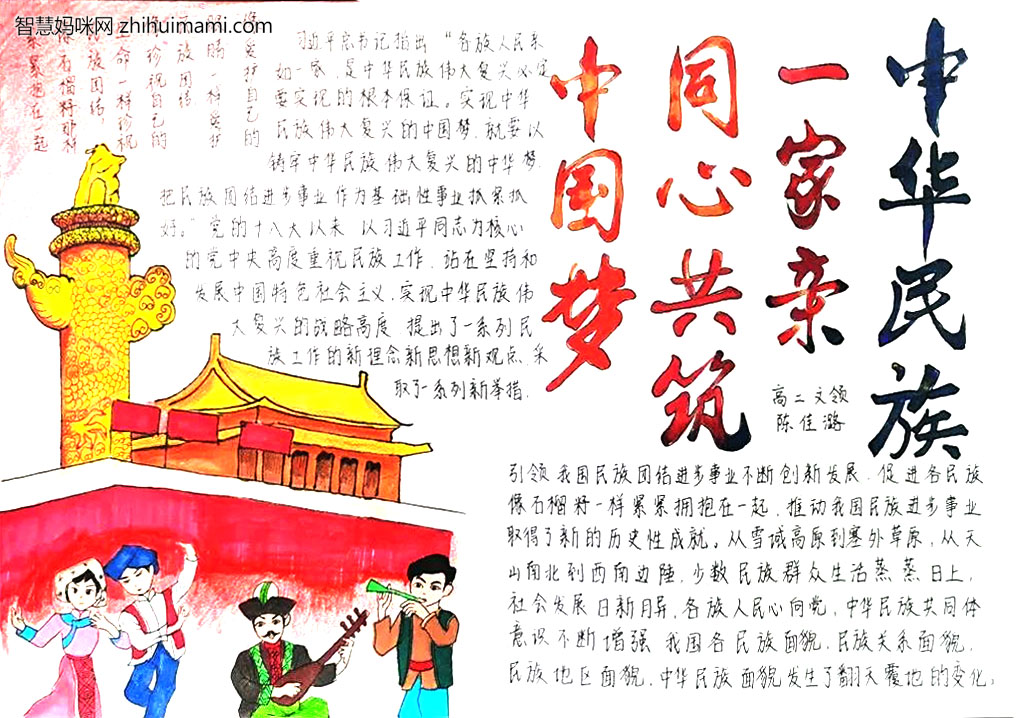 智慧妈咪网 zhihuimami.com
中华民族
一家亲
同心共筑
中国梦
高二文领
陈佳潞
爱护自己的
眼睛一样爱护
民族团结
像珍视自己的
生命一样珍视
民族团结
像石榴籽那样
紧紧抱在一起
习近平总书记指出“各族人民亲
如一家，是中华民族伟大复兴必定
要实现的根本保证。实现中华
民族伟大复兴的中国梦，就要以
铸牢中华民族伟大复兴的中华梦，
把民族团结进步事业作为基础性事业抓紧抓
好。”党的十八大以来 以习近平同志为核心
的党中央高度重视民族工作，站在坚持和
发展中国特色社会主义，实现中华民族伟
大复兴的战略高度 提出了一系列民
族工作的新理念新思想新观点，采
取了一系列新举措，
引领我国民族团结进步事业不断创新发展，促进各民族
像石榴籽一样紧紧拥抱在一起，推动我国民族进步事业
取得了新的历史性成就。从雪域高原到塞外草原，从天
山南北到西南边陲，少数民族群众生活蒸蒸日上，
社会发展日新月异，各族人民心向党，中华民族共同体
意识不断增强 我国各民族面貌，民族关系面貌，
民族地区面貌，中华民族面貌发生了翻天覆地的变化，